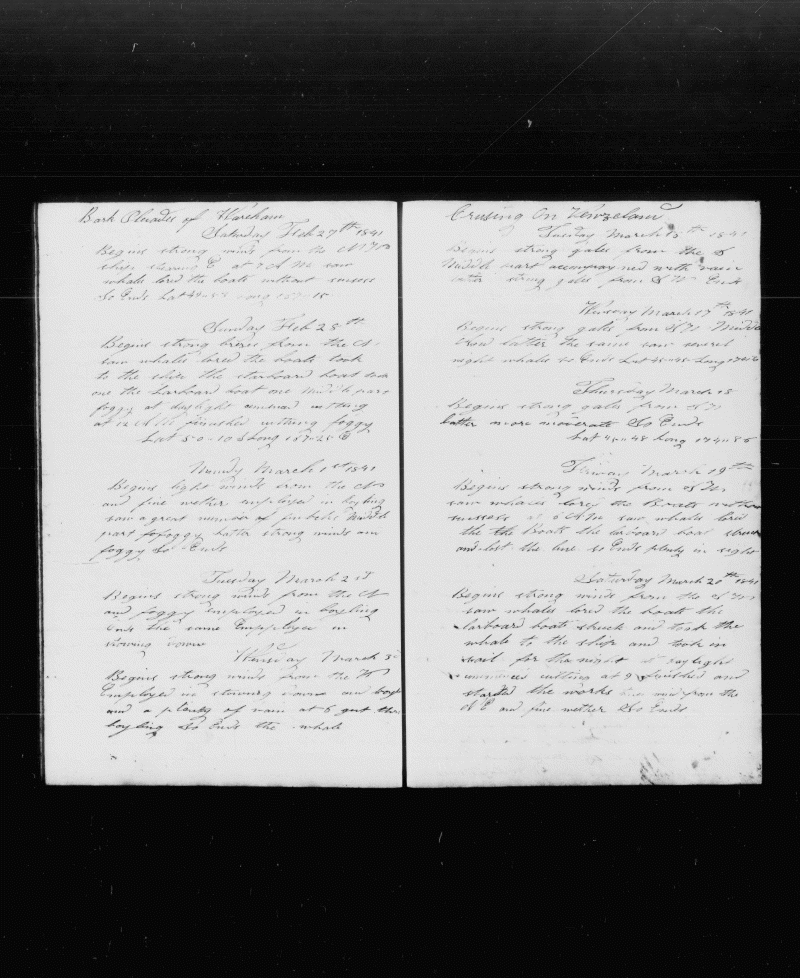 Bark Pleiades of Wareham
Saturday Feb 27th 1841
Begins strong winds from the N
ship steering E at 7 A M saw
whale lored the boats without sucsess
So Ends Lat 49
Sunday Feb 28th
Begins strong brees from the N
saw whales lored the boats took
to the ship the starboard boat
one the Larboard boat one Middle part
foggy at daylight cutting
at 12 A M finished cutting foggy
Lat 50-10 S Long 157-25 E
Munday March 1st 1841
Begins light winds from the
and fine wether employed in boyling
saw a great number of finbacks Middle
part foggy Latter strong winds and
foggy So Ends
Tuesday March 2
Begins strong winds from the N
and foggy Employed in boyling
Ends the same Employed in
stowing down
March 3
Begins strong winds from the
Employed in stowing down and boyl
and a plenty of rain at 6 got thr
boyling So Ends the whale
Crusing On Newzeland
Tuesday March 1841
Begins strong gales from the S
Middle part acompayned with rain
latter strong gales from Ends
March 17th 1841
Begins strong gales from Middle
and latter the same saw severil
right whales So Ends Lat 45 Long
Thursday March 18
Begins strong gales from
latter more moderate So Ends
Lat 48 Long
Friday March 19th
Begins strong winds from
saw whales lored the Boats without
sucsess at A M saw whale lored
the the Boats the larboard boat struck
and lost the line so Ends plenty in sight
Saturday March 20th 1841
Begins strong winds from the
saw whales lored the boats the
larboard boats struck and took the
whale to the ship and took in
sail for the night at daylight
cutting at 9 finished and
started the works wind from the
N E and fine wether So Ends